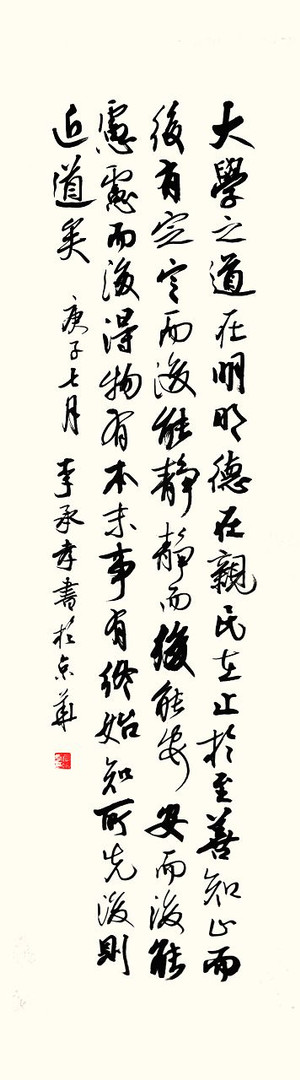 大學之道在明明德在親民在止於至善知止而
後有定定而後能靜靜而後能安安而後能
慮慮而後得物有本末事有終始知所先後則
近道矣 庚子七月 李承孝書於京華